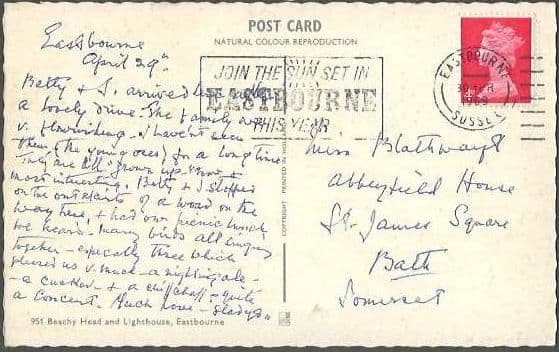 POST CARD
NATURAL COLOUR REPRODUCTION
Eastbourne
April 29th
JOIN THE SUN SET IN
EASTBOURNE
THIS YEAR
EASTBOURNE
30 APR
1969
SUSSEX
Betty & I arrived here after
a lovely drive. The family are
v. flourishing. I haven't seen
them (the young ones) for a long time
They are all "grown ups" now &
most interesting. Betty & I stopped
on the outskirts of a wood on the
way here, & had our picnic lunch
we heard many birds all singing
together - especially three which
pleased us v. much - a nightingale -
a cuckoo & a chiffchaff - quite
a Concert. Much love - Gladys
Miss Blathwayt
Abbeyfield House
St. James Square
Bath
Somerset
COPYRIGHT PRINTED IN HOLLAND
951 Beachy Head and Lighthouse, Eastbourne